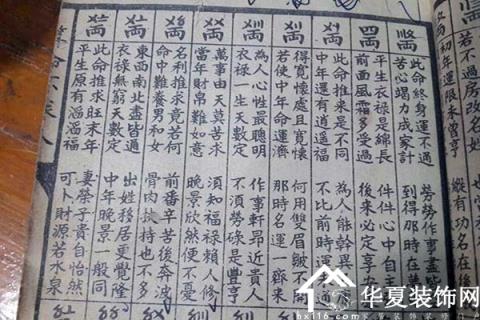 初年運限未曾亨
縱有功名在後
若不過房改名姓
此命終身運不通
勞勞作事盡
苦心竭力成家計
到得那時在
平生衣祿是綿長
件件心中自
前面風霜多受過
後來必定享
此命推來是不同
為人能幹異
中年還有逍遥福
不比前時運
得寬懷處且寬懷
何用雙眉皺不開
若使中年命運濟
那時名運一齊來
為人心性最聰明
作事軒昂近貴人
衣祿一生天數定
不須勞碌是豐亨
萬事由天莫苦求
須知福祿賴人修
當年財帛難如意
晚景欣然便不憂
名利推求竟若何
前番辛苦後奔波
命中難養男和女
骨肉扶持也不多
東西南北盡皆通
出姓移居更覺隆
衣祿無窮天數定
中年晚景一般同
此命推求旺末年
妻榮子貴自怡然
平生原有滔滔福
可卜財源若水泉
华夏装饰网
hx116.com